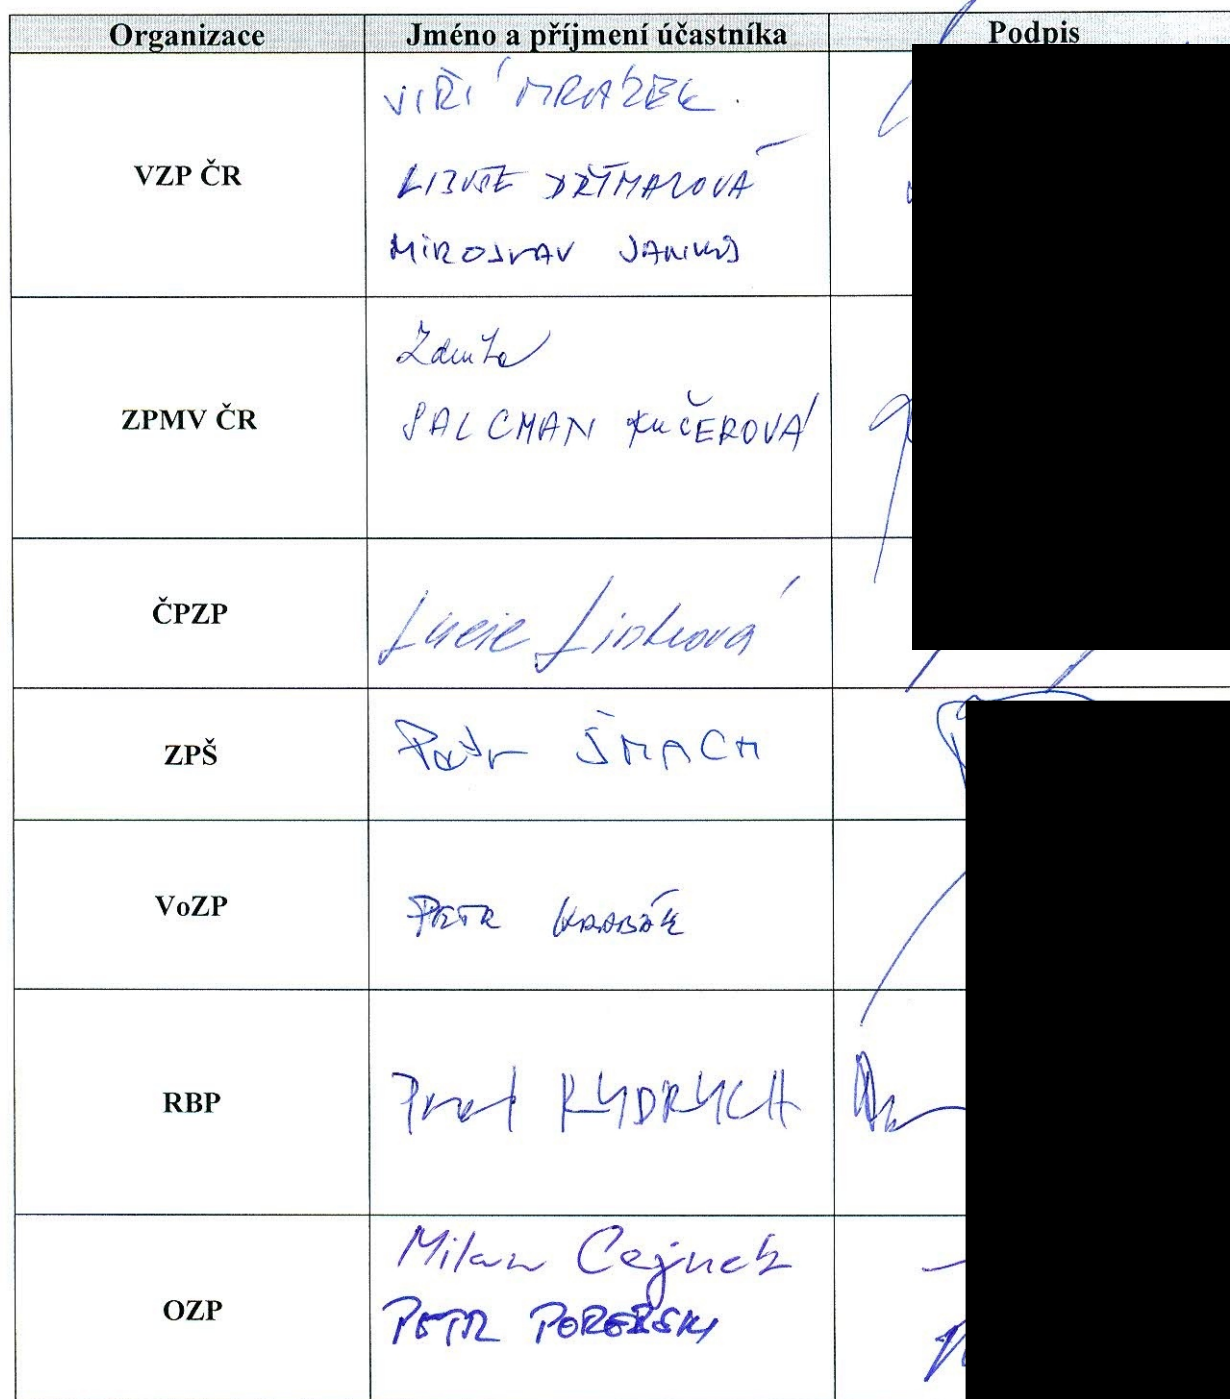 Organizace Jméno a příjmení účastníka Podpis
VZP ČR
JIŘÍ MRÁZEK.
LIBUŠE DŘÍMALOVÁ
MIROSLAV JANKŮ
ZPMV ČR
Zdeňka
SALCMAN KUČEROVÁ
ČPZP
Lucie Linková
ZPŠ
Petr ŠMACH
VoZP
PETR HRABÁK
RBP
Pavel RYDRYCH
OZP
Milan Cejnek
PETR POREBSKI